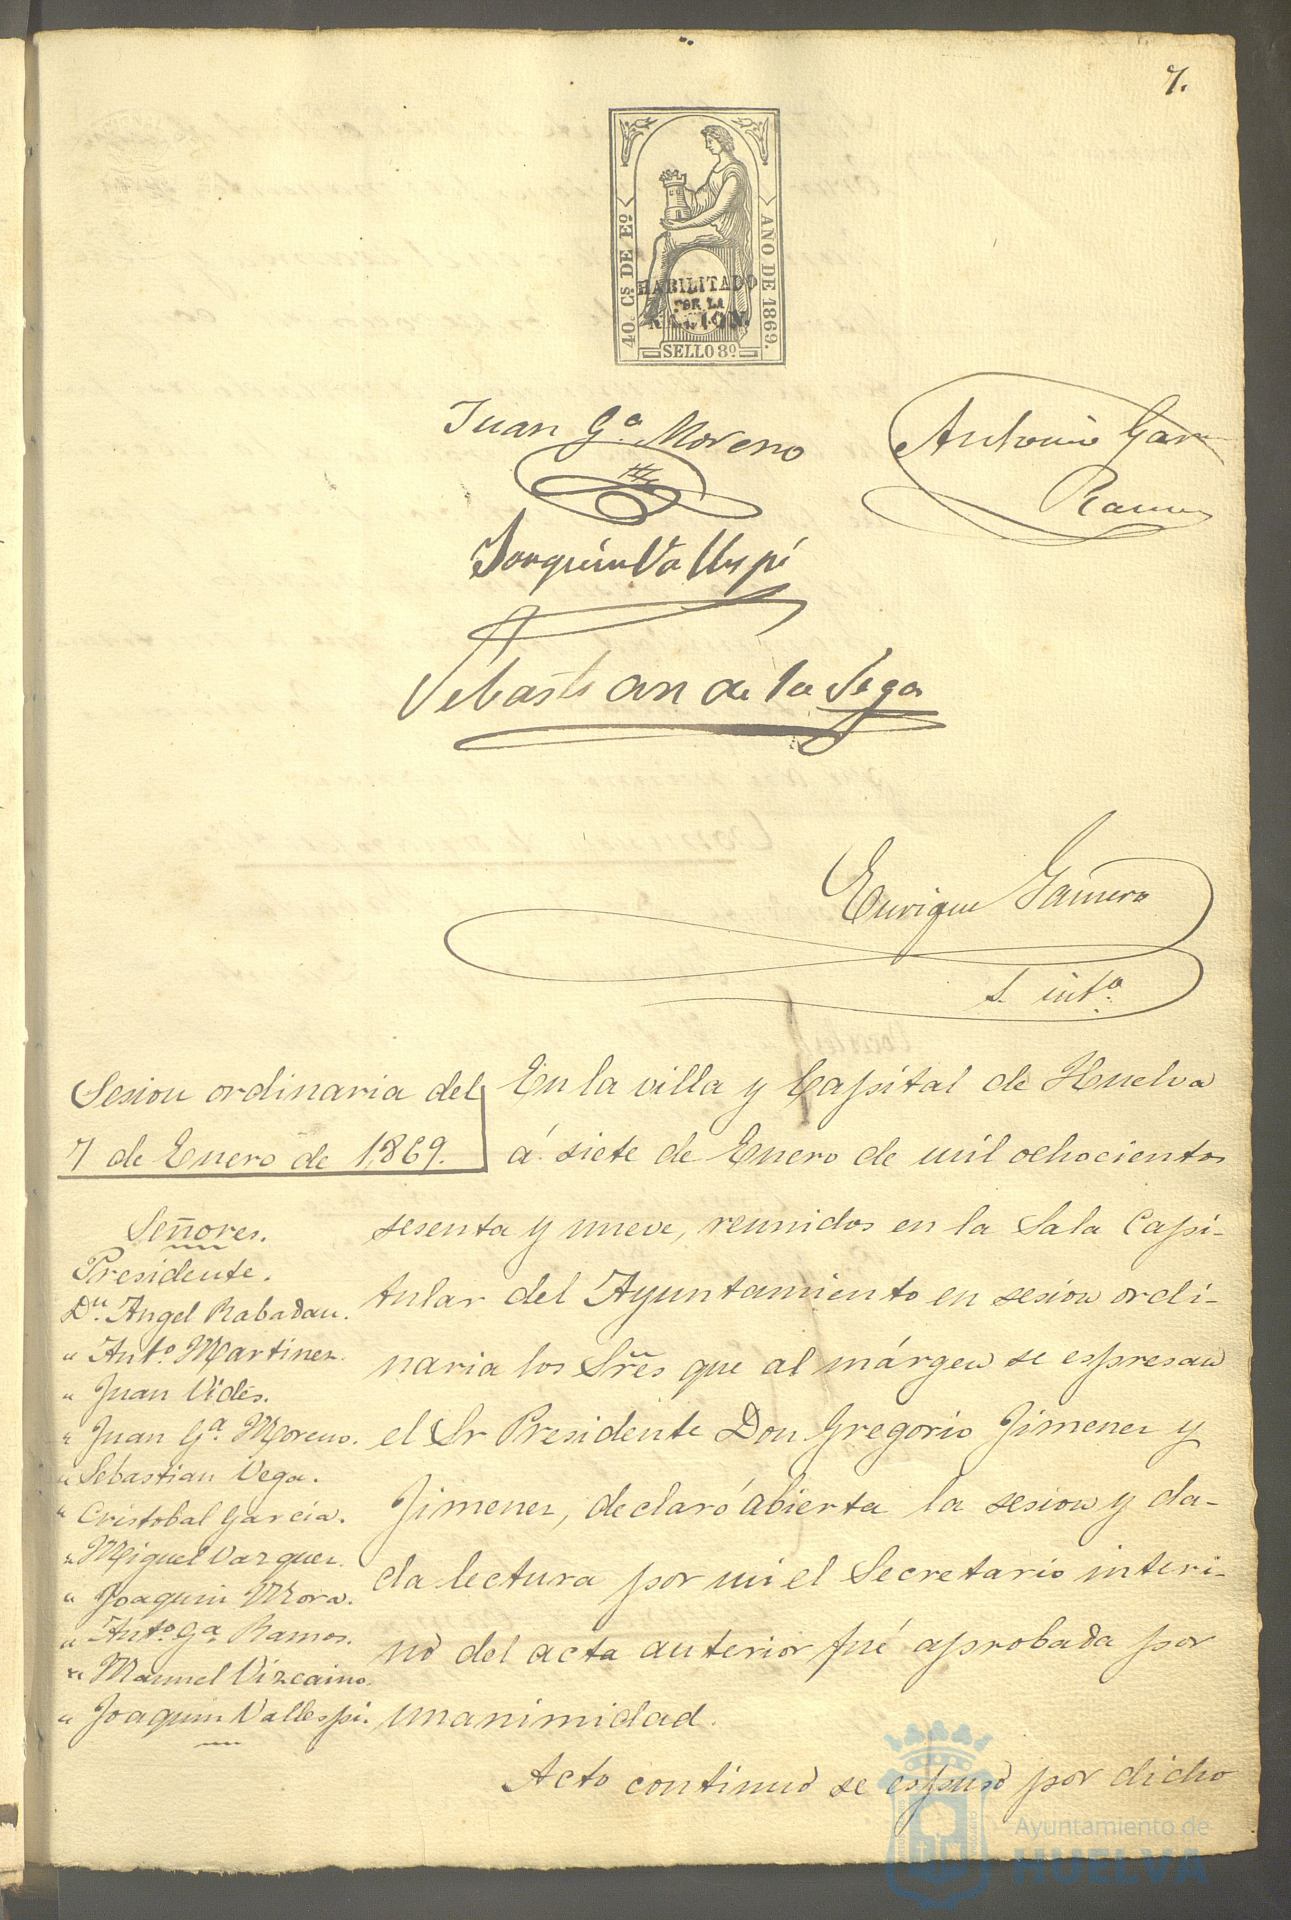 7.
40. Cs DE Eº
AÑO DE 1869.
HABILITADO
POR LA
NACION.
SELLO 8º
Juan Gª Moreno
Antonio Gar
Ramos
Joaquin Vallespí
Sebastian de la Vega
Enrique Gamero
S. intº
Sesion ordinaria del
7 de Enero de 1,869.
En la villa y Capital de Huelva
á siete de Enero de mil ochocientos
sesenta y nueve, reunidos en la Sala Capi-
tular del Ayuntamiento en sesion ordi-
naria los Sres que al márgen se espresan
el Sr Presidente Don Gregorio Jimenez y
Jimenez, declaró abierta la sesion y da-
da lectura por mi el Secretario interi-
no del acta anterior fué aprobada por
unanimidad.
Acto continuo se espuso por dicho
Señores.
Presidente.
Dn. Angel Rabadan.
" Antº Martinez.
" Juan Vides.
" Juan Gª Moreno.
" Sebastian Vega.
" Cristobal Garcia.
" Miguel Vazquez.
" Joaquin Mora.
" Antº Gª Ramos.
" Manuel Vizcaino.
" Joaquin Vallespi.
Ayuntamiento de
HUELVA